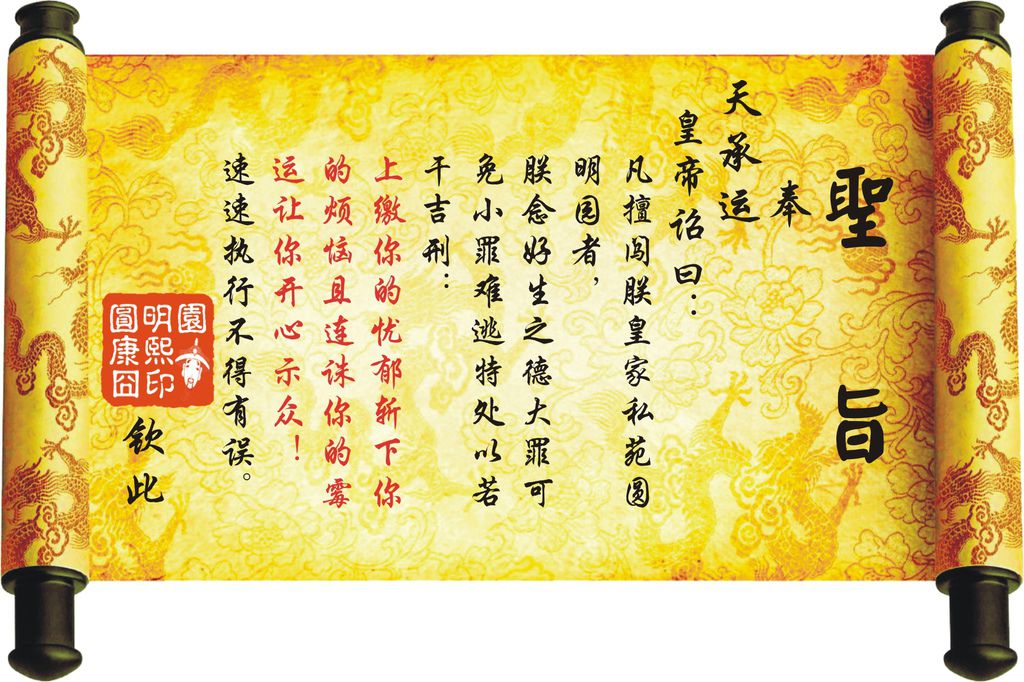 聖旨
奉
天承运
皇帝诏曰：
凡擅闯朕皇家私苑圆
明园者，
朕念好生之德大罪可
免小罪难逃特处以若
干吉刑：
上缴你的忧郁斩下你
的烦恼且连诛你的霉
运让你开心示众！
速速执行不得有误。
钦此
園
明熙印
圓康囧